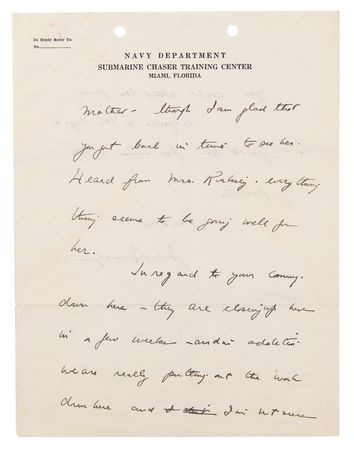 In Reply Refer To
No.
NAVY DEPARTMENT
SUBMARINE CHASER TRAINING CENTER
MIAMI, FLORIDA
Mother - though I am glad that
you got back in time to see her.
Heard from Mrs. - everything
thing seems to be going well for
her.
In regard to your coming
down here - they are closing up here
in a few weeks - and in addition
we are really putting out the work
down here and I I'm not sure